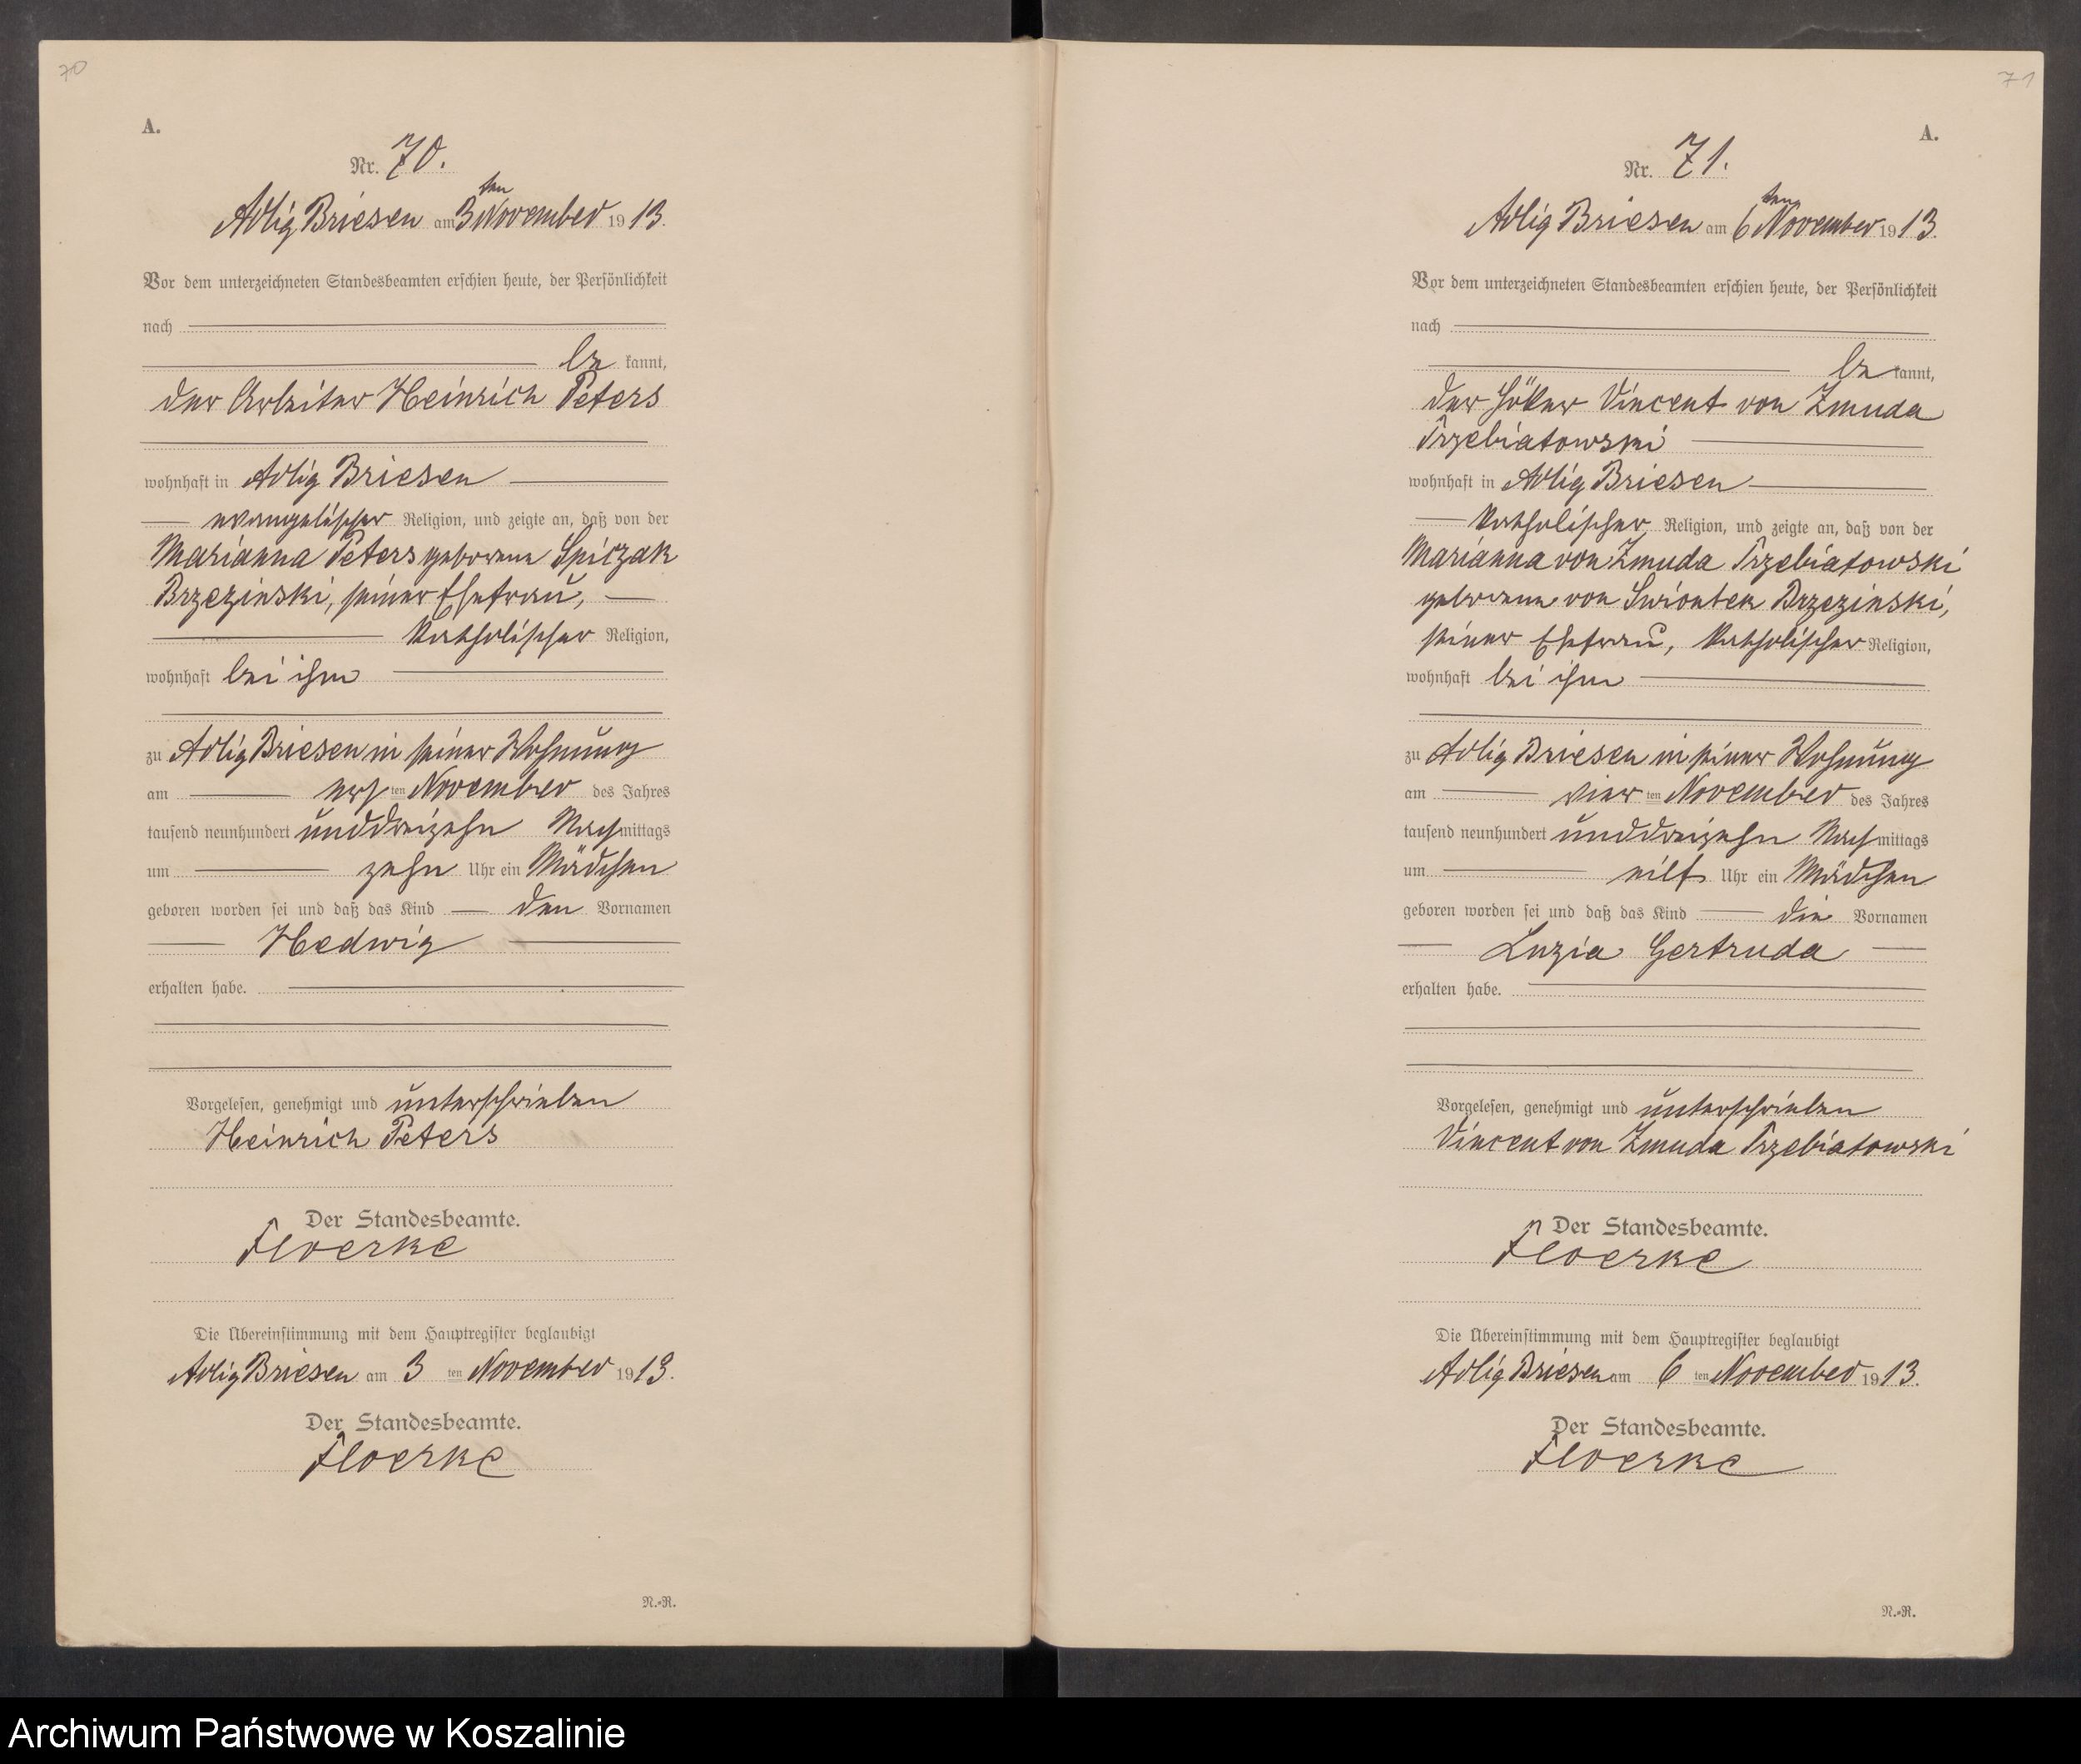 70
A.
Nr. 70.
Adlig Briesen am 3ten November 1913.
Vor dem unterzeichneten Standesbeamten erschien heute, der Persönlichkeit
nach
be kannt,
der Arbeiter Heinrich Peters
wohnhaft in Adlig Briesen
evangelischer Religion, und zeigte an, daß von der
Marianna Peters geborene Spiczak
Brzezinski, seiner Ehefrau,
katholischer Religion,
wohnhaft bei ihm
zu Adlig Briesen in seiner Wohnung
am ersten November des Jahres
tausend neunhundert unddreizehn Nachmittags
um zehn Uhr ein Mädchen
geboren worden sei und daß das Kind den Vornamen
Hedwig
erhalten habe.
Vorgelesen, genehmigt und unterschrieben
Heinrich Peters
Der Standesbeamte.
Floerke
Die Übereinstimmung mit dem Hauptregister beglaubigt
Adlig Briesen am 3 ten November 1913.
Der Standesbeamte.
Floerke
N.-R.
71
A.
Nr. 71.
Adlig Briesen am 6ten November 1913.
Vor dem unterzeichneten Standesbeamten erschien heute, der Persönlichkeit
nach
be kannt,
der Höker Vincent von Zmuda
Trzebiatowski
wohnhaft in Adlig Briesen
katholischer Religion, und zeigte an, daß von der
Marianna von Zmuda Trzebiatowski
geborene von Swiontek Brzezinski,
seiner Ehefrau, katholischer Religion,
wohnhaft bei ihm
zu Adlig Briesen in seiner Wohnung
am vier ten November des Jahres
tausend neunhundert unddreizehn Nachmittags
um eilf Uhr ein Mädchen
geboren worden sei und daß das Kind die Vornamen
Luzia Gertruda
erhalten habe.
Vorgelesen, genehmigt und unterschrieben
Vincent von Zmuda Trzebiatowski
Der Standesbeamte.
Floerke
Die Übereinstimmung mit dem Hauptregister beglaubigt
Adlig Briesen am 6 ten November 1913.
Der Standesbeamte.
Floerke
N.-R.
Archiwum Państwowe w Koszalinie